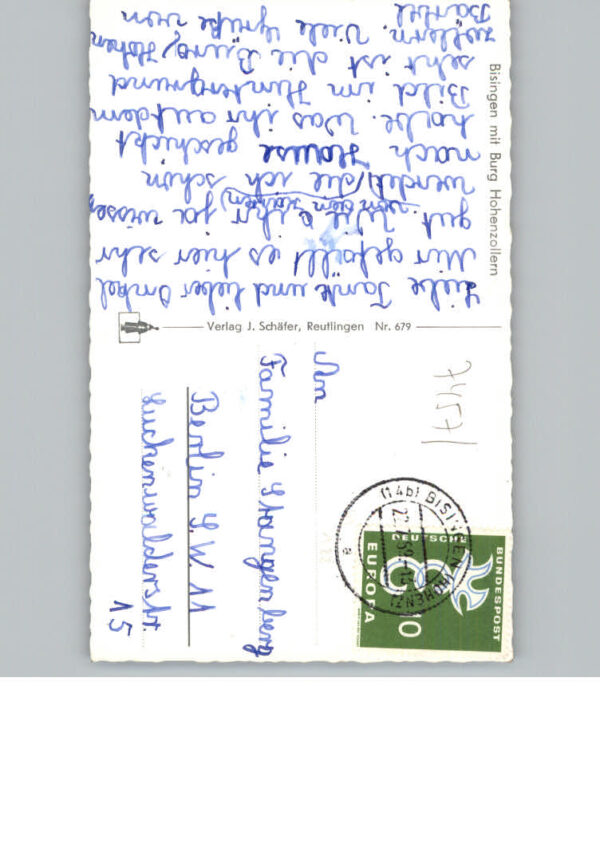 Bisingen mit Burg Hohenzollern
Liebe Tante und lieber Onkel
Mir gefällt es hier sehr
gut. Wie ihr ja wisse,
von den Karten
werdet, die ich schon
nach Hause geschickt
habe. Was ihr auf dem
Bild im Hintergrund
seht ist die Burg, Hohen
zollern. Viele Grüße von
Bärbel
Verlag J. Schäfer, Reutlingen Nr. 679
(14b) BISINGEN (HOHENZ)
22.7.59
a
DEUTSCHE
BUNDESPOST
EUROPA
10
An
Familie Stangenberg
Berlin S.W. 11
Luckenwalderstr.
15